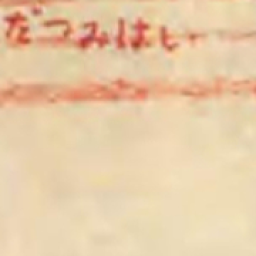 だつみはし